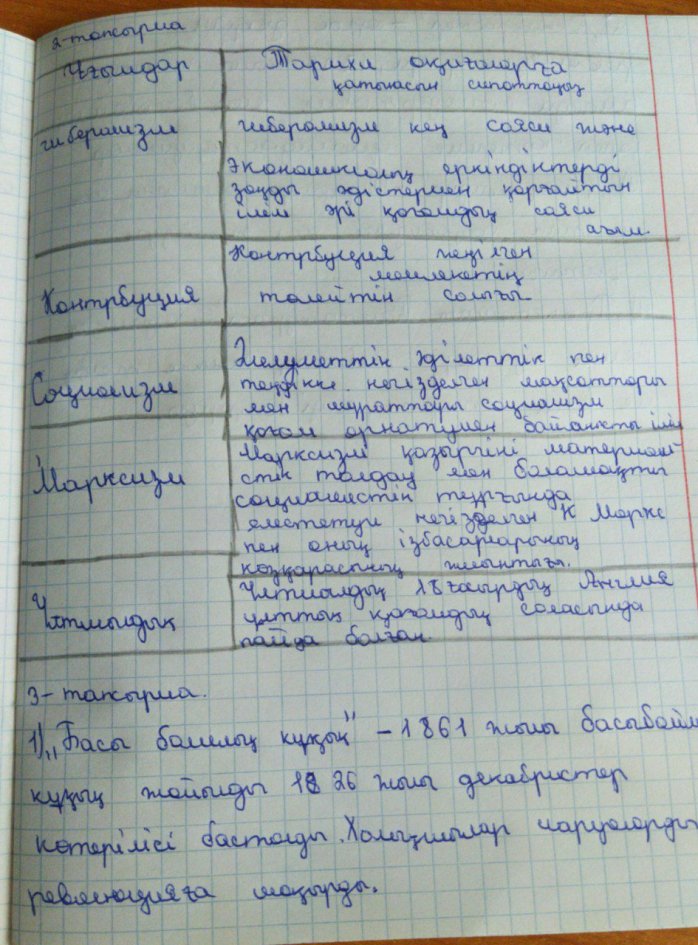 2-тапсырма
Ұғымдар
Тарихи оқиғаларға
қатынасын сипаттаңыз
либерализм
либерализм кең саяси және
экономикалық еркіндіктерді
заңды әдістермен қорғайтын
ілім әрі қоғамдық саяси
ағым.
Контрбуция
Контрбуция жеңілген
мемлекеттің
төлейтін салығы
Социализм
Әлеуметтік әділеттік пен
теңдікке негізделген мақсаттары
мен мұраттары социализм
қоғам орнатумен байланысты ілім
Марксизм
Марксизм қазіргіні материалис-
стік талдау мен болашақты
социалистік тұрғыда
елестетуи негізделген К Маркс
пен оның ізбасарларының
көзқарасының жиынтығы.
Ұлтшылдық
Ұлтшылдық 18 ғасырдың Англия
ұлттық қоғамдық саласында
пайда болған
3- тапсырма.
1) „Басы байлық құқық" – 1861 жылы басыбайлы
құқық жойылды 1826 жылы декабристер
көтерілісі басталды. Халықшылар шаруаларды
революцияға шақырды.